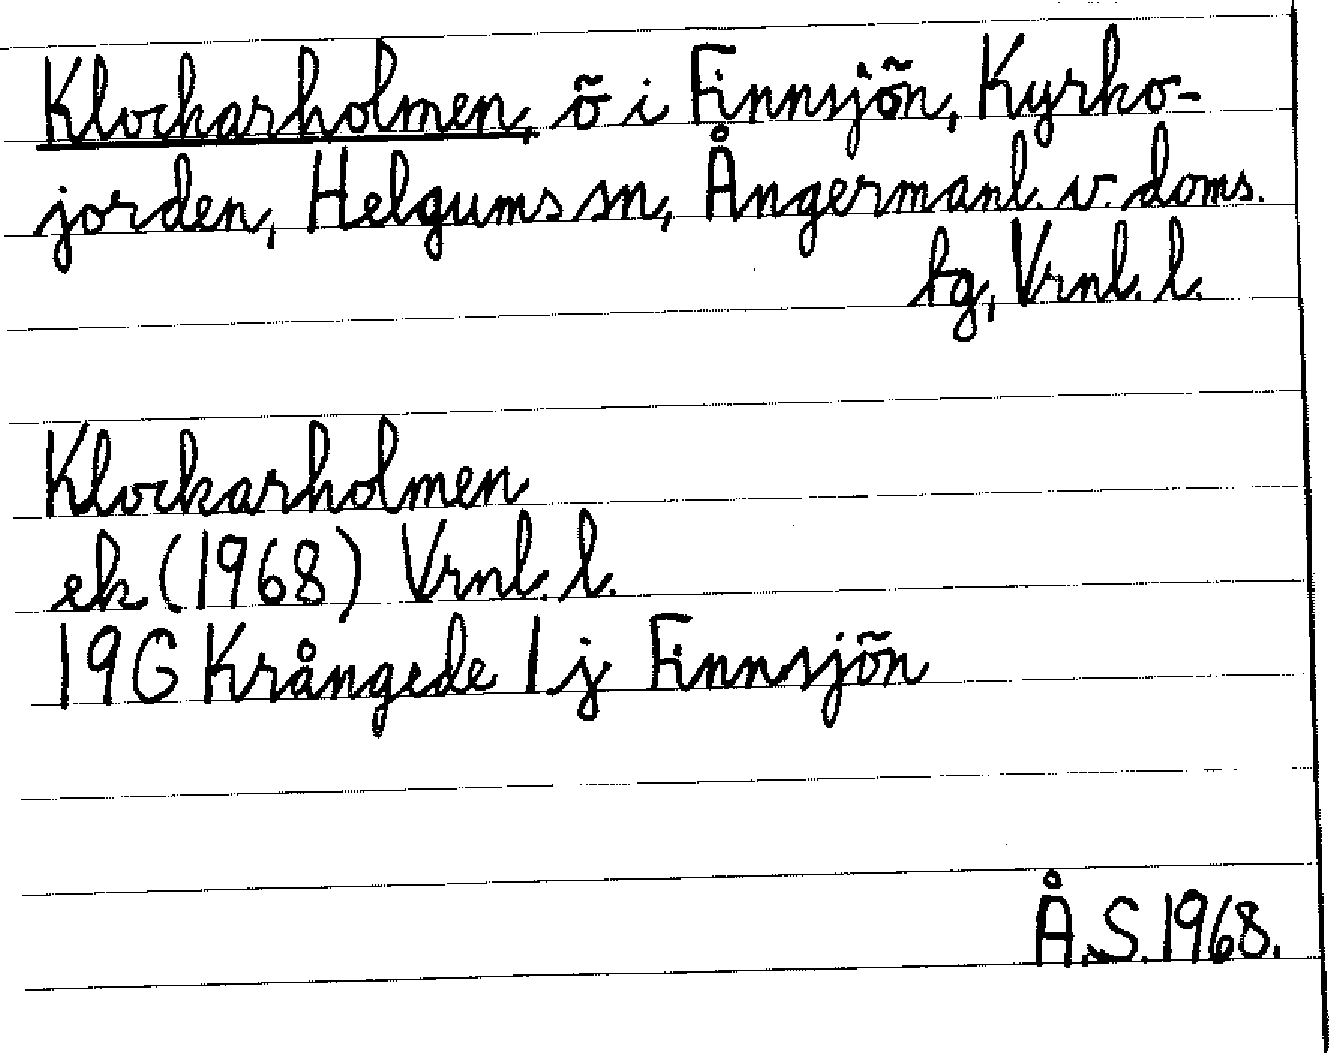 Klockarholmen, ö i Finnsjön, Kyrko-
jorden, Helgums sn, Ångermanl. v. doms.
tg, Vrnl. l.
Klockarholmen
ek (1968) Vrnl. l.
19G Krångede 1 j Finnsjön
Å.S. 1968.